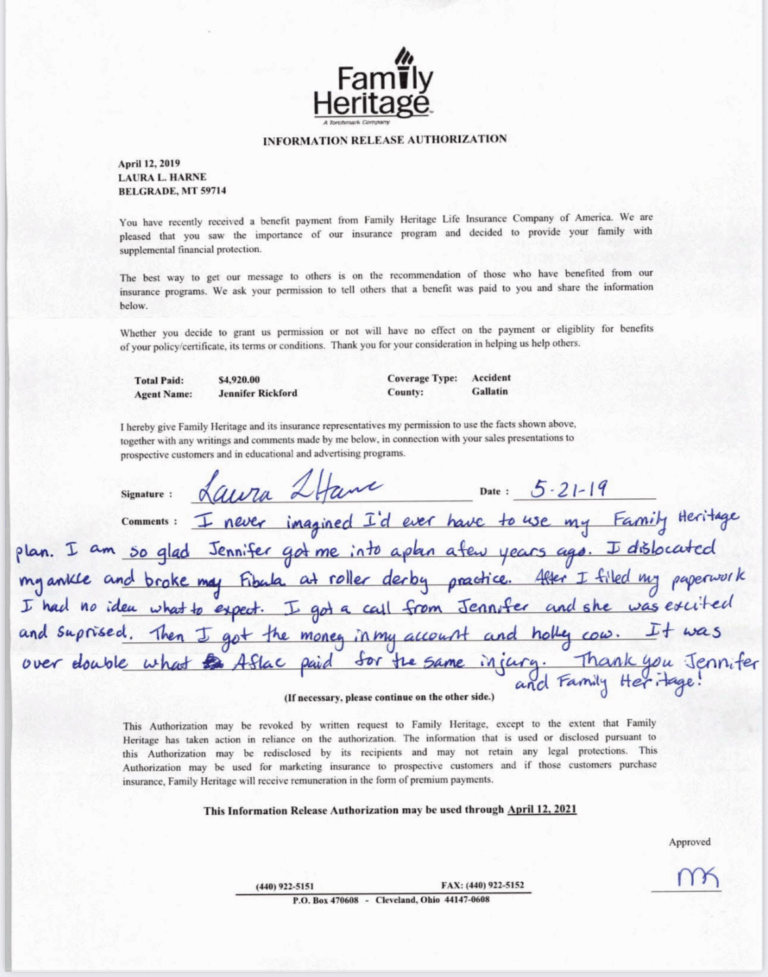 Family
Heritage
A Torchmark Company
INFORMATION RELEASE AUTHORIZATION
April 12, 2019
LAURA L. HARNE
BELGRADE, MT 59714
You have recently received a benefit payment from Family Heritage Life Insurance Company of America. We are
pleased that you saw the importance of our insurance program and decided to provide your family with
supplemental financial protection.
The best way to get our message to others is on the recommendation of those who have benefited from our
insurance programs. We ask your permission to tell others that a benefit was paid to you and share the information
below.
Whether you decide to grant us permission or not will have no effect on the payment or eligiblity for benefits
of your policy/certificate, its terms or conditions. Thank you for your consideration in helping us help others.
Total Paid: $4,920.00 Coverage Type: Accident
Agent Name: Jennifer Rickford County: Gallatin
I hereby give Family Heritage and its insurance representatives my permission to use the facts shown above,
together with any writings and comments made by me below, in connection with your sales presentations to
prospective customers and in educational and advertising programs.
Signature : Laura L Harne Date : 5-21-19
Comments : I never imagined I'd ever have to use my Family Heritage
plan. I am so glad Jennifer got me into a plan a few years ago. I dislocated
my ankle and broke my Fibula at roller derby practice. After I filed my paperwork
I had no idea what to expect. I got a call from Jennifer and she was excited
and suprised. Then I got the money in my account and holly cow. It was
over double what Aflac paid for the same injury. Thank you Jennifer
and Family Heritage!
(If necessary, please continue on the other side.)
This Authorization may be revoked by written request to Family Heritage, except to the extent that Family
Heritage has taken action in reliance on the authorization. The information that is used or disclosed pursuant to
this Authorization may be redisclosed by its recipients and may not retain any legal protections. This
Authorization may be used for marketing insurance to prospective customers and if those customers purchase
insurance, Family Heritage will receive remuneration in the form of premium payments.
This Information Release Authorization may be used through April 12, 2021
Approved
MK
(440) 922-5151 FAX: (440) 922-5152
P.O. Box 470608 - Cleveland, Ohio 44147-0608